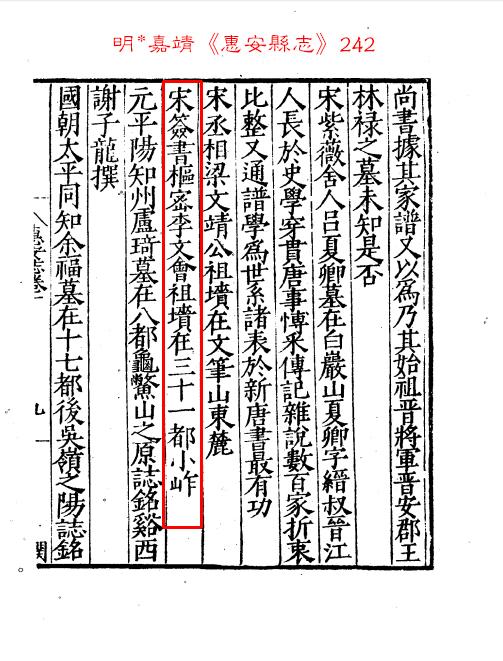 明*嘉靖《惠安縣志》242
尚書據其家譜又以為乃其始祖晋將軍晋安郡王
林禄之墓未知是否
宋紫薇舍人吕夏卿墓在白巖山夏卿字縉叔晉江
人長於史學穿貫唐事博采傳記雜說數百家折衷
比整又通譜學為世系諸表於新唐書最有功
宋丞相梁文靖公祖墳在文筆山東麓
宋簽書樞密李文會祖墳在三十一都小岞
元平陽知州盧琦墓在八都龜鱉山之原誌銘谿西
謝子龍撰
國朝太平同知余福墓在十七都後吳嶺之陽誌銘
惠安志卷
九